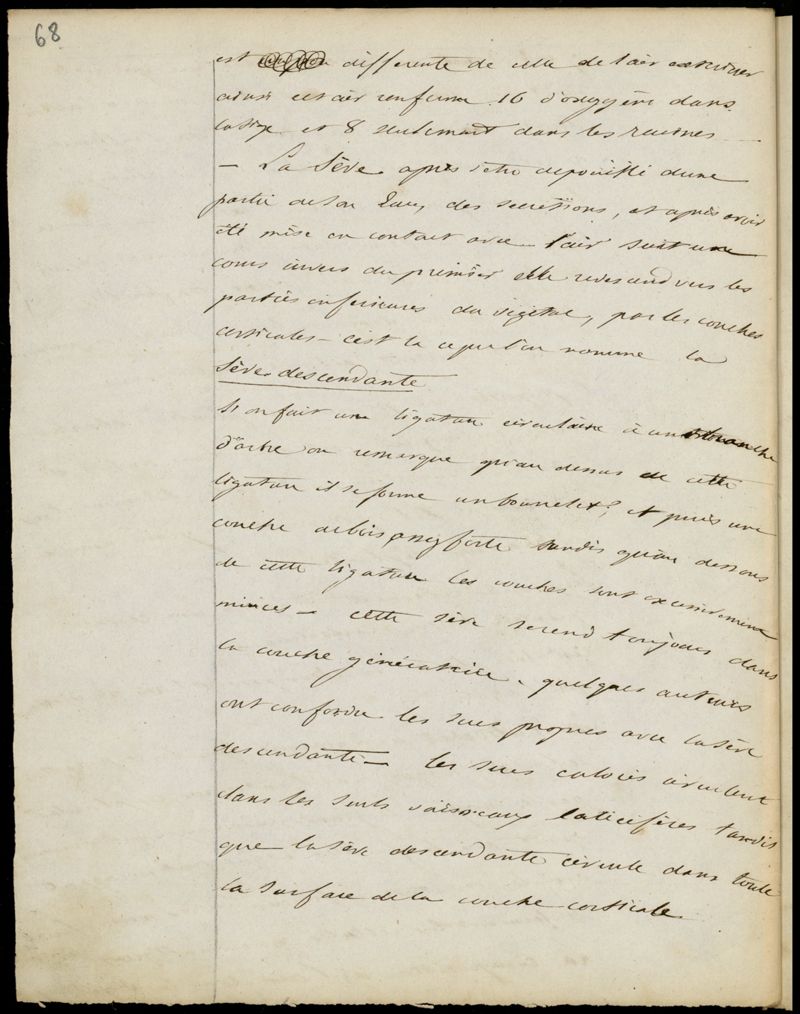 68
est differente de celle de l'air extérieur
ainsi cet air renferme 16 d'oxygène dans
la tige et 8 seulement dans les racines
— La Sève après s'etre depouillé d'une
partie de son Eau, des secretions, et après avoir
été mise en contact avec l'air suit une
cours invers du premier elle redescend vers les
parties inferieures du végétal, par les couches
corticales — c'est la ce que l'on nomme la
Sève descendante
Si on fait une ligature circulaire à une branche
d'arbre on remarque qu'au dessus de cette
ligature il se forme un bourrelet, et puis une
couche de bois assez forte tandis qu'au dessous
de cette ligature les couches sont excessivement
minces — cette sève se rend toujours dans
la couche génératrice. quelques auteurs
ont confondu les sucs propres avec la sève
descendante — les sucs colorés circulent
dans les seuls vaisseaux laticifères tandis
que la sève descendante circule dans toute
la surface de la couche corticale